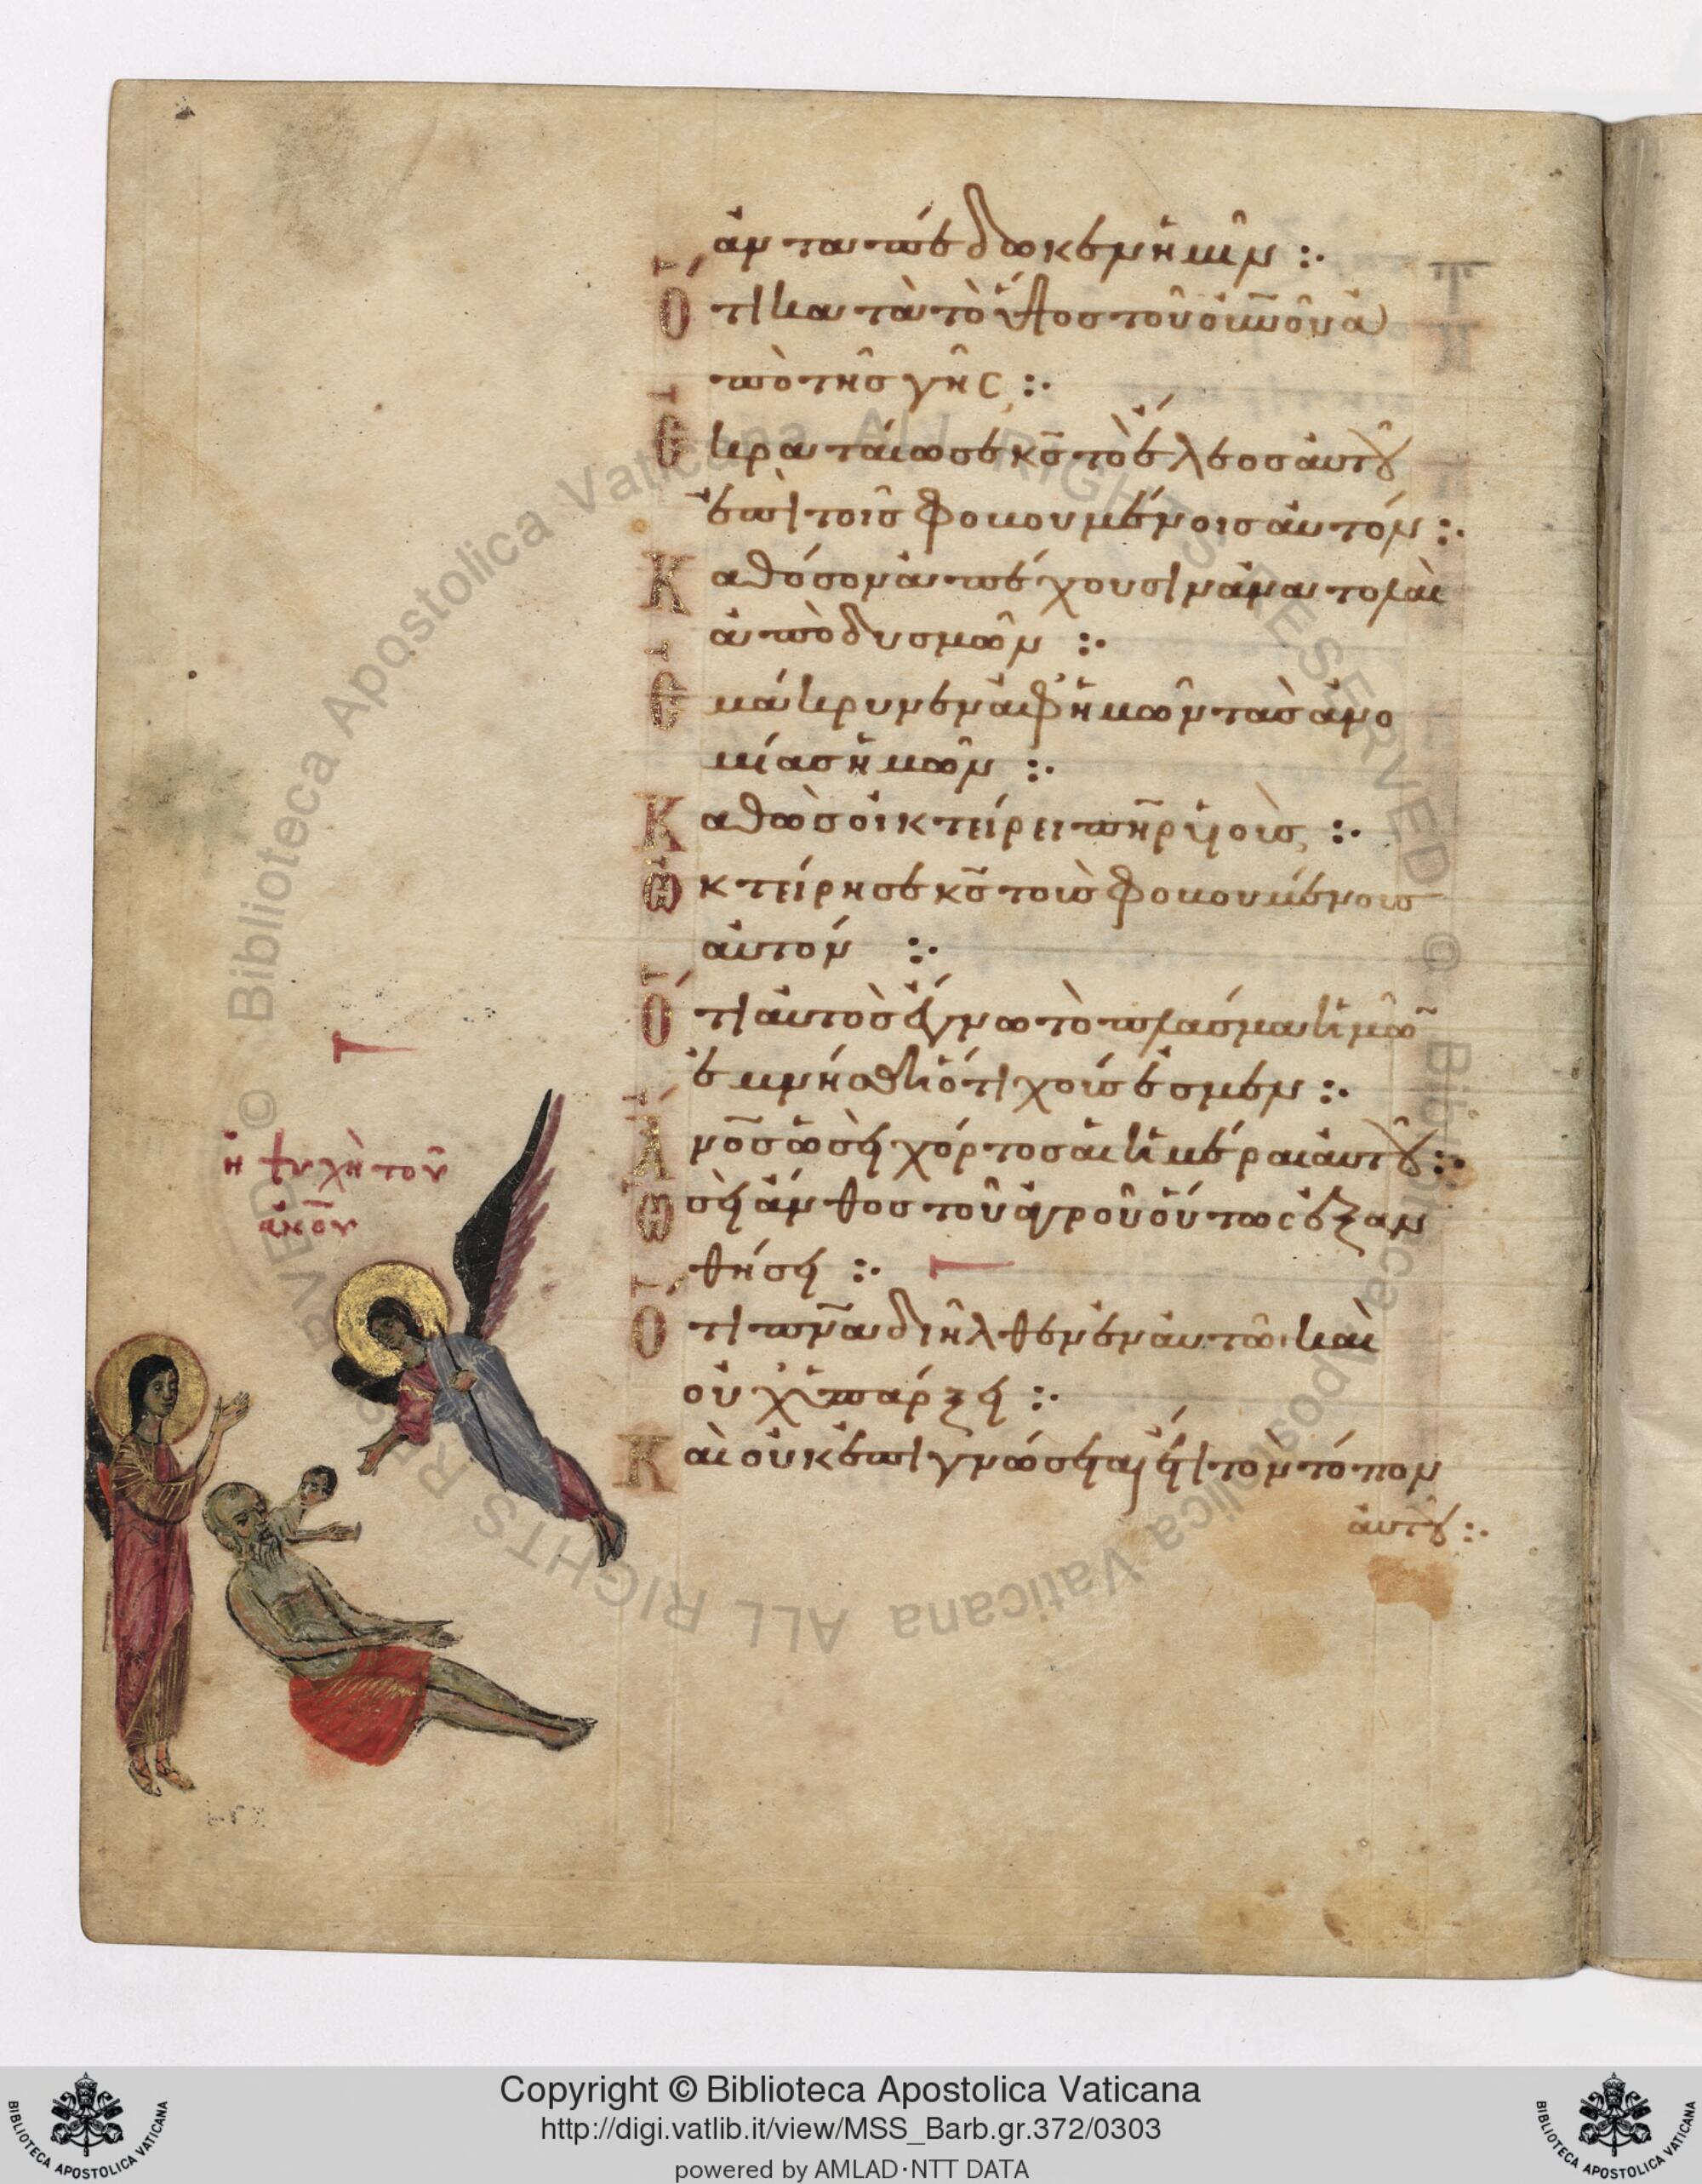 ἀνταπέδωκεν ἡμῖν :·
Ὅτι κατὰ τὸ ὕψος τοῦ οὐ͞νοῦ ἀ
πὸ τῆς γῆς :·
Ἐκραταίωσε κ͞ς τὸ ἔλεος αὐτοῦ
ἐπὶ τοῖς φοβουμένοις αὐτόν :·
Καθόσον ἀπέχουσιν ἀνατολαὶ
ἀπὸ δυσμῶν :·
Ἐμάκρυνεν ἀφ' ἡμῶν τὰς ἀνο
μίας ἡμῶν :·
Καθὼς οἰκτείρει π͞ηρ υἱοὺς :·
Ὠκτείρησε κ͞ς τοὺς φοβουμένους
αὐτόν :·
Ὅτι αὐτὸς ἔγνω τὸ πλάσμα ἡμῶ͞
ἐμνήσθη ὅτι χοῦς ἐσμεν :·
Ἄν͞ος ὡσεὶ χόρτος αἱ ἡμέραι αὐτοῦ :·
Ὡσεὶ ἄνθος τοῦ ἀγροῦ οὕτως ἐξαν
θήσει :·
Ὅτι πν͞α διῆλθεν ἐν αὐτῶ καὶ
οὐχ ὑπάρξει :·
Καὶ οὐκ ἐπιγνώσεται ἔτι τὸν τόπον
αὐτοῦ :·
ἡ ψυχὴ τοῦ
ἀν͞ου
Copyright © Biblioteca Apostolica Vaticana
http://digi.vatlib.it/view/MSS_Barb.gr.372/0303
powered by AMLAD·NTT DATA
BIBLIOTECA APOSTOLICA VATICANA
BIBLIOTECA APOSTOLICA VATICANA
© Biblioteca Apostolica Vaticana ALL RIGHTS RESERVED © Biblioteca Apostolica Vaticana ALL RIGHTS RESERVED